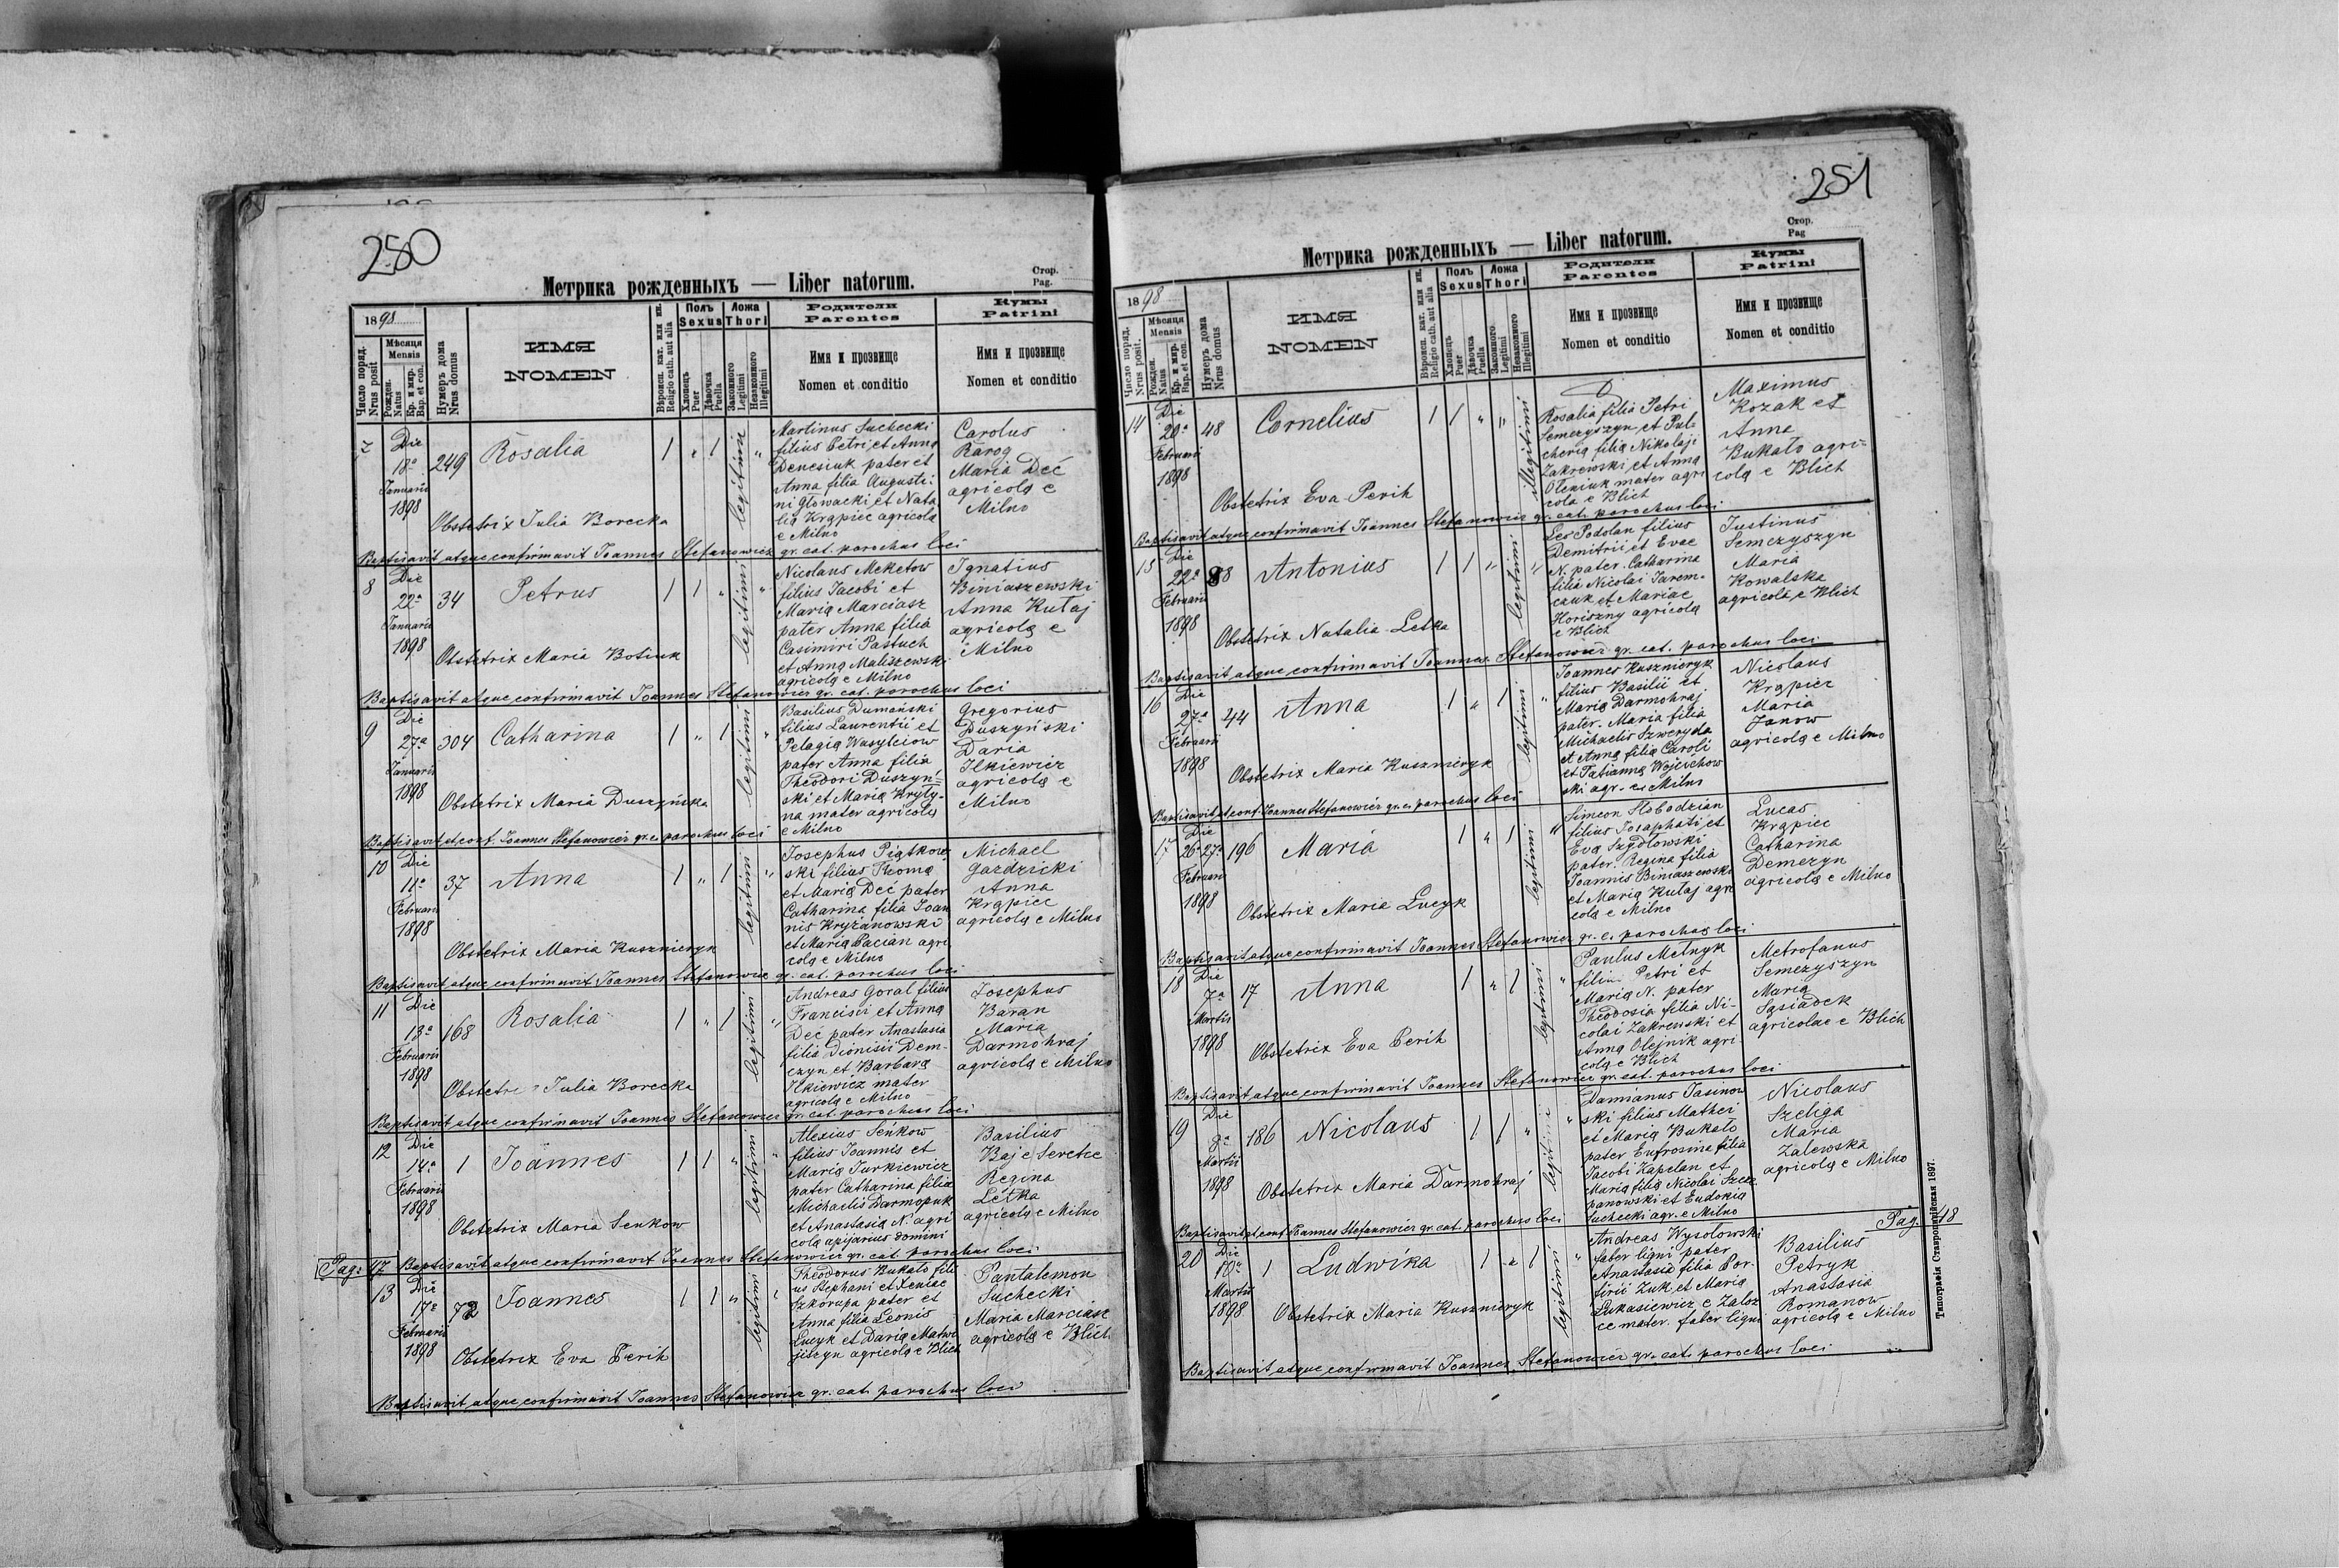 250
Метрика рожденныхъ — Liber natorum.
Стор.
Pag.
1898
Число поряд.
Nrus posit
Мѣсяця
Mensis
Рожден.
Natus
Кр. и мир.
Bap. et con.
Нумеръ дома
Nrus domus
ИМЯ
NOMEN
Вѣроисп. кат. или ин.
Religio cath. aut alia
Полъ
Sexus
Хлопець
Puer
Дѣвочка
Puella
Ложа
Thori
Законного
Legitimi
Незаконного
Illegitimi
Родители
Parentes
Имя и прозвище
Nomen et conditio
Кумы
Patrini
Имя и прозвище
Nomen et conditio
7 Die 18a Januarii 1898 249 Rosalia 1 " 1 legitima "
Martinus Suchecki
filius Petri et Anna
Denesiuk pater et
Anna filia Augusti-
ni Głowacki et Nata
lia Krąpiec agricolą
e Milno
Carolus
Rarog
Maria Deć
agricolą e
Milno
Obstetrix Julia Borecka
Baptisavit atque confirmavit Joannes Stefanowicz gr. cat. parochus loci
8 Die 22a Januarii 1898 34 Petrus 1 1 " legitimi "
Nicolaus Meketow
filius Jacobi et
Maria Marciasz
pater Anna filia
Casimiri Pastuch
et Anna Maliszewski
agricolą e Milno
Ignatius
Biniaszewski
Anna Kutaj
agricolą e
Milno
Obstetrix Maria Botiuk
Baptisavit atque confirmavit Joannes Stefanowicz gr. cat. parochus loci
9 Die 27a Januarii 1898 304 Catharina 1 " 1 legitimi "
Basilius Dumański
filius Laurentii et
Pelagia Wasylciow
pater Anna filia
Theodori Duszyń-
ski et Maria Kryty-
na mater agricolą
e Milno
Gregorius
Duszyński
Daria
Ilkiewicz
agricolą e
Milno
Obstetrix Maria Duszyńska
Baptisavit et conf. Joannes Stefanowicz gr. c. parochus loci
10 Die 11a Februarii 1898 37 Anna 1 " 1 legitimi "
Josephus Piątkow
ski filius Thoma
et Maria Deć pater
Catharina filia Joan
nis Kryżanowski
et Maria Pacian agri
colą e Milno
Michael
Gazdzicki
Anna
Krąpiec
agricolą e Milno
Obstetrix Maria Kusznieryk
Baptisavit atque confirmavit Joannes Stefanowicz gr. cat. parochus loci
11 Die 13a Februarii 1898 168 Rosalia 1 " 1 legitimi "
Andreas Goral filius
Francisci et Anna
Deć pater Anastasia
filia Dionisii Dem-
czyn et Barbara
Ilkiewicz mater
agricolą e Milno
Josephus
Baran
Maria
Darmohraj
agricolą e Milno
Julia Borecka
Baptisavit atque confirmavit Joannes Stefanowicz gr. cat. parochus loci
12 Die 14a Februarii 1898 1 Joannes 1 1 " legitimi "
Alexius Seńkow
filius Joannis et
Maria Jurkiewicz
pater Catharina filia
Michaelis Darmopuk
et Anastasia N. agri
cola apijarius domini
Basilius
Baj e Seretec
Regina
Letka
agricolą e Milno
Obstetrix Maria Senkow
Pag: 17 Baptisavit atque confirmavit Joannes Stefanowicz gr. cat. parochus loci
13 Die 17a Februarii 1898 72 Joannes 1 1 " legitimi
Theodorus Bukało fili
us Stephani et Xeniae
Szkorupa pater et
Anna filia Leonis
Lucyk et Daria Matwi
jiszyn agricolą e Blich
Pantalemon
Suchecki
Maria Marciasz
agricolą e Blich
Obstetrix Eva Perih
Baptisavit atque confirmavit Joannes Stefanowicz gr. cat. parochus loci
251
Метрика рожденныхъ — Liber natorum.
Стор.
Pag
1898
Число поряд.
Nrus posit.
Мѣсяця
Mensis
Рожден.
Natus
Кр. и мир.
Bap. et con.
Нумеръ дома
Nrus domus
ИМЯ
NOMEN
Вѣроисп. кат. или ин.
Religio cath. aut alia
Полъ
Sexus
Хлопець
Puer
Дѣвочка
Puella
Ложа
Thori
Законного
Legitimi
Незаконного
Illegitimi
Родители
Parentes
Имя и прозвище
Nomen et conditio
Кумы
Patrini
Имя и прозвище
Nomen et conditio
14 Die 20a Februarii 1898 48 Cornelius 1 1 " " illegitimi
Rosalia filia Petri
Semczyszyn et Pul-
cheria filia Nikolaji
Zakrewski et Anna
Olexiuk mater agri
cola e Blich
Maximus
Kozak et
Anna
Bukało agri-
colą e Blich
Obstetrix Eva Perih
Baptisavit atque confirmavit Joannes Stefanowicz gr. cat. parochus loci
15 Die 22a Februarii 1898 88 Antonius 1 1 " legitimi "
Leo Podolan filius
Demitrii et Evae
N. pater. Catharina
filia Nicolai Jarem-
czuk et Mariae
Horiszny agricolą
e Blich
Justinus
Semczyszyn
Maria
Kowalska
agricolą e Blich
Obstetrix Natalia Letka
Baptisavit atque confirmavit Joannes Stefanowicz gr. cat. parochus loci
16 Die 27a Februarii 1898 44 Anna 1 " 1 legitimi "
Joannes Kusznieryk
filius Basilii et
Maria Darmohraj
pater. Maria filia
Michaelis Szweryda
et Anna filia Caroli
et Tatianna Wojcichow
ski agr. e Milno
Nicolaus
Krąpiec
Maria
Janow
agricolą e Milno
Obstetrix Maria Kusznieryk
Baptisavit et conf. Joannes Stefanowicz gr. c. parochus loci
17 Die 26a 27a Februarii 1898 196 Maria 1 " 1 legitimi "
Simeon Slobodzian
filius Josaphati et
Eva Szydłowski
pater. Regina filia
Joannis Biniaszewski
et Maria Kutaj agri
colą e Milno
Lucas
Krąpiec
Catharina
Demczyn
agricolą e Milno
Obstetrix Maria Lucyk
Baptisavit atque confirmavit Joannes Stefanowicz gr. c. parochus loci
18 Die 7a Martii 1898 17 Anna 1 " 1 legitimi "
Paulus Melnyk
filius Petri et
Maria N. pater
Theodosia filia Ni-
colai Zakrewski et
Anna Olejnik agri
colą e Blich
Metrofanus
Semczyszyn
Maria
Sąsiadek
agricolae e Blich
Obstetrix Eva Perih
Baptisavit atque confirmavit Joannes Stefanowicz gr. cat. parochus loci
19 Die 8a Martii 1898 186 Nicolaus 1 1 " legitimi "
Damianus Jasinow
ski filius Mathei
et Maria Bukało
pater Eufrosine filia
Jacobi Kapelan et
Maria filia Nicolai Szcze
panowski et Eudokia
Suchecki agr. e Milno
Nicolaus
Szeliga
Maria
Zalewska
agricolą e Milno
Obstetrix Maria Darmohraj
Baptisavit et conf. Joannes Stefanowicz gr. cat. parochus loci
Pag. 18
20 Die 10a Martii 1898 1 Ludwika 1 " 1 legitimi "
Andreas Wysotowski
faber ligni pater
Anastasia filia Por-
firii Zuk et Maria
Lukasiewicz e Zaloz
ce mater. faber ligni
Basilius
Petryk
Anastasia
Romanow
agricolą e Milno
Obstetrix Maria Kusznieryk
Baptisavit atque confirmavit Joannes Stefanowicz gr. cat. parochus loci
Типографія Ставропигійская 1897.